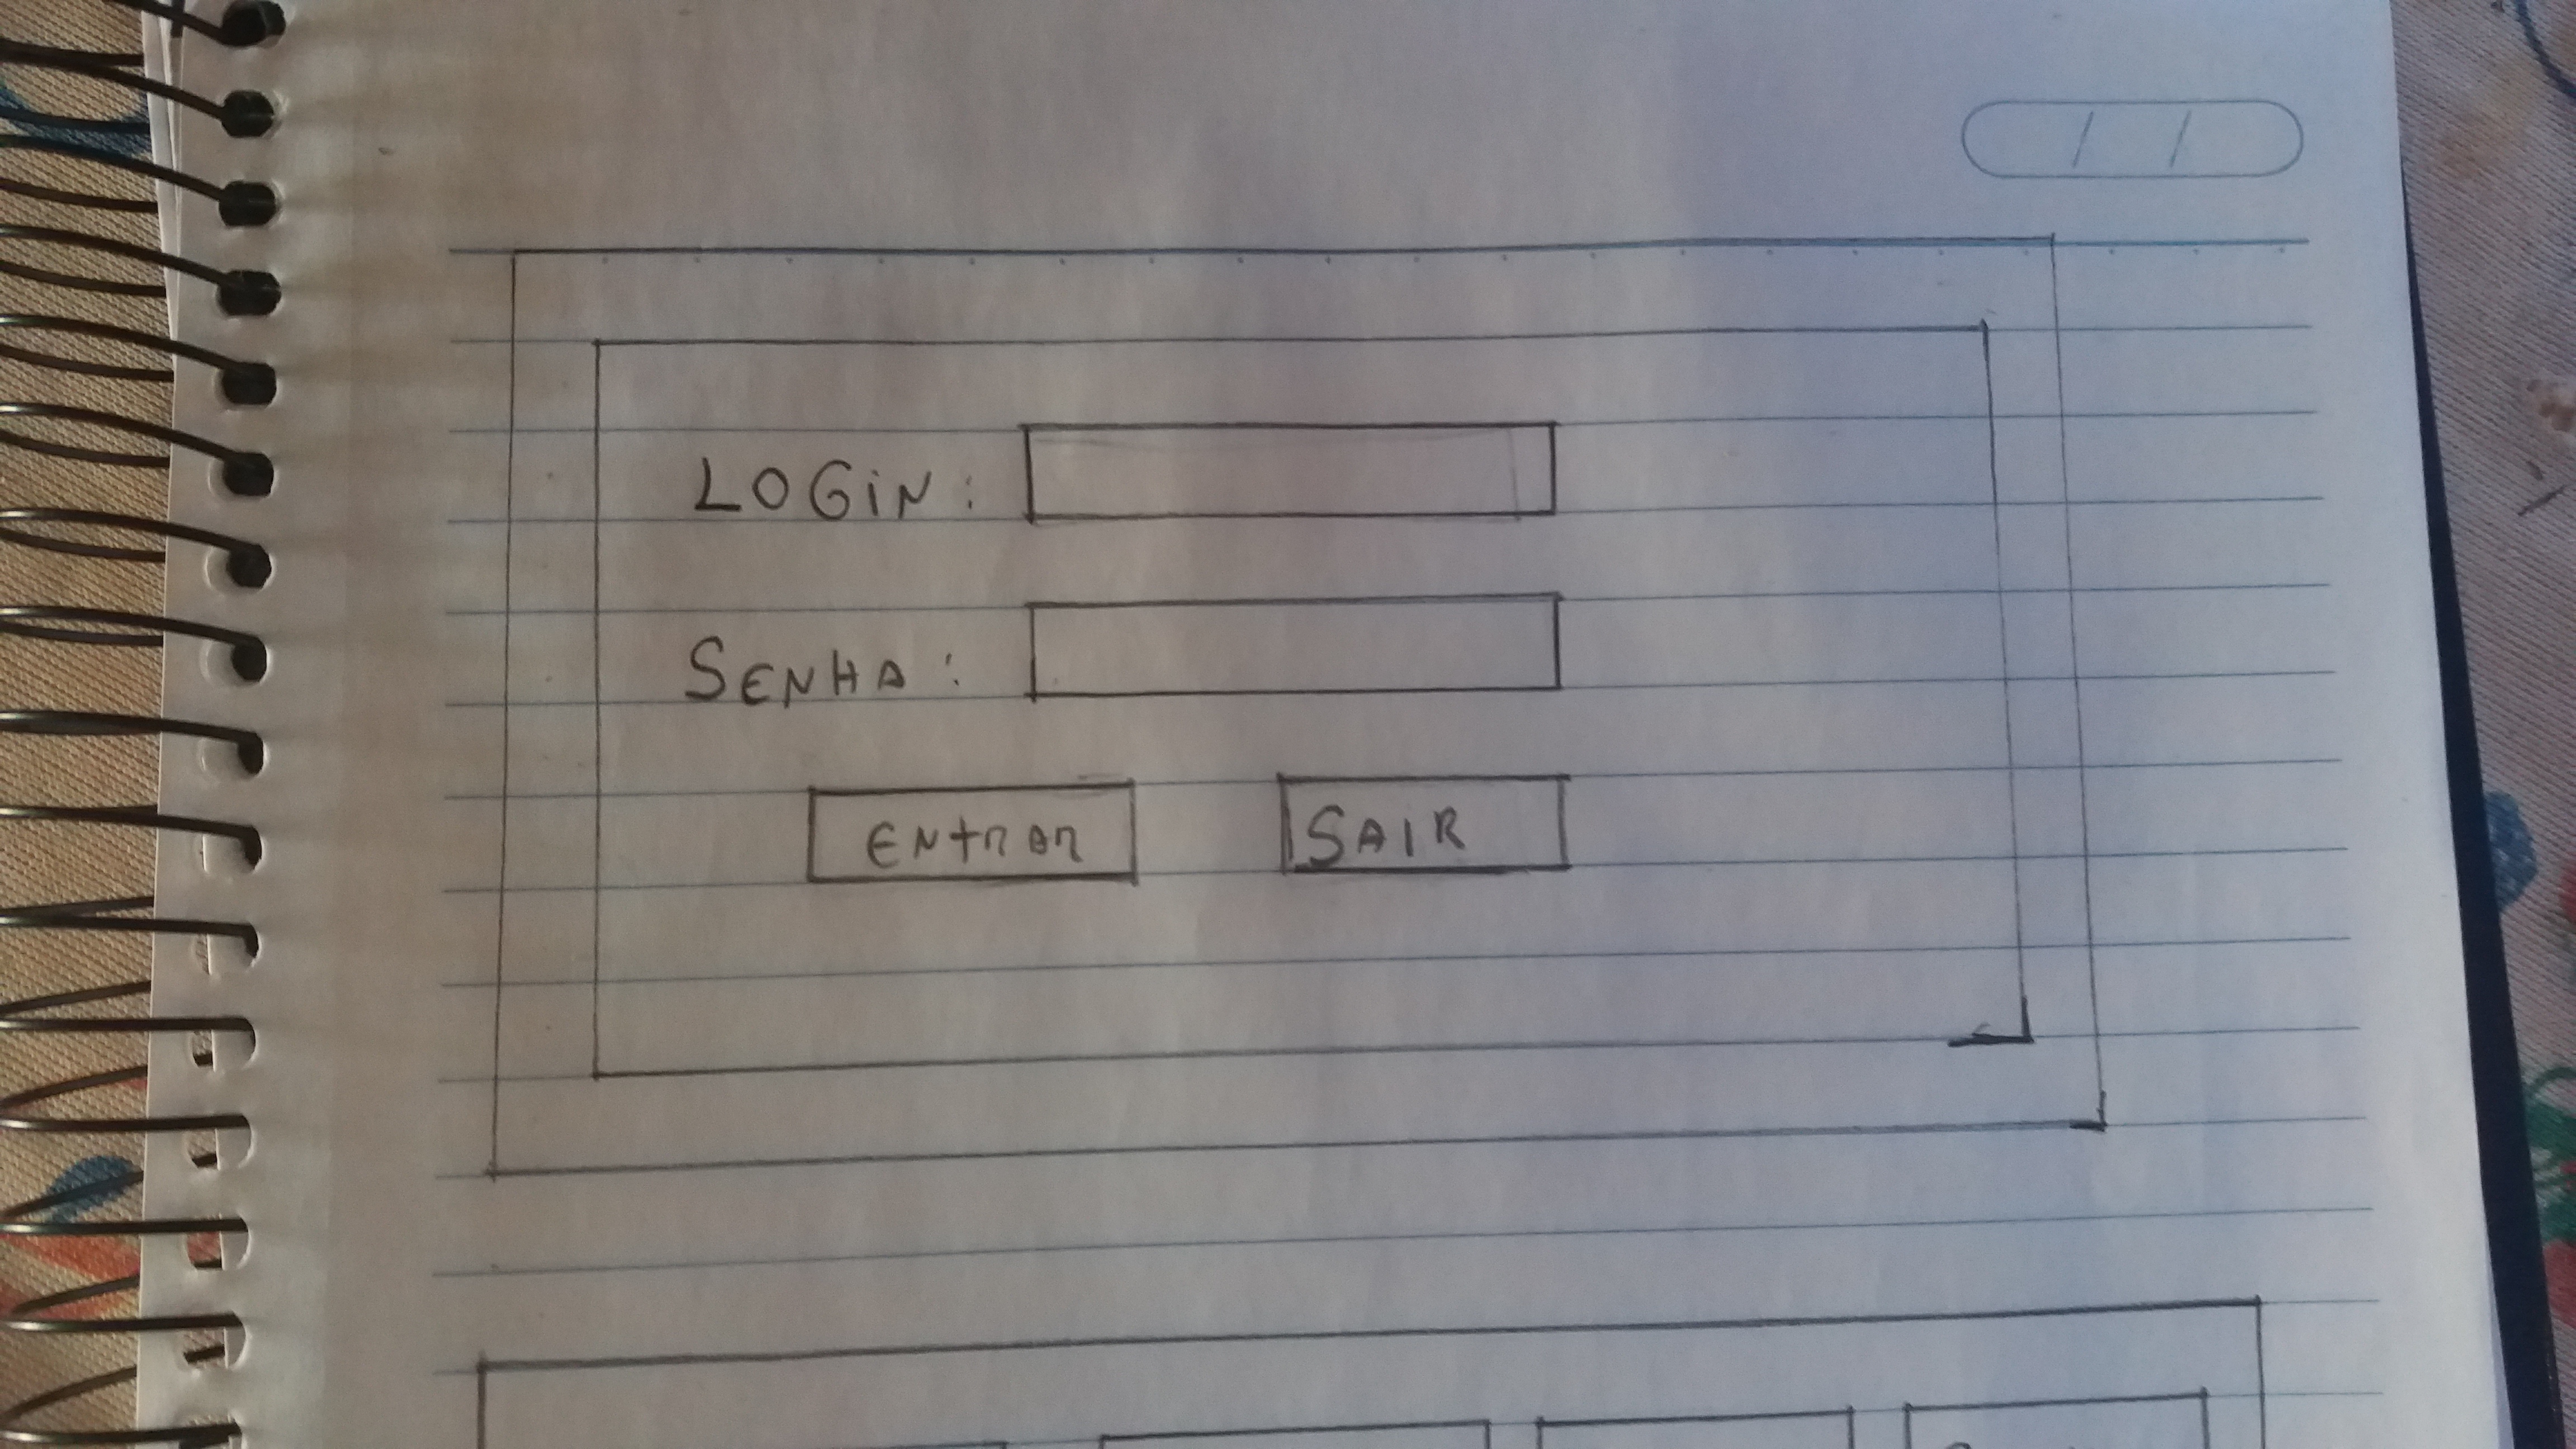 LOGIN:
SENHA:
Entrar SAIR
/ /